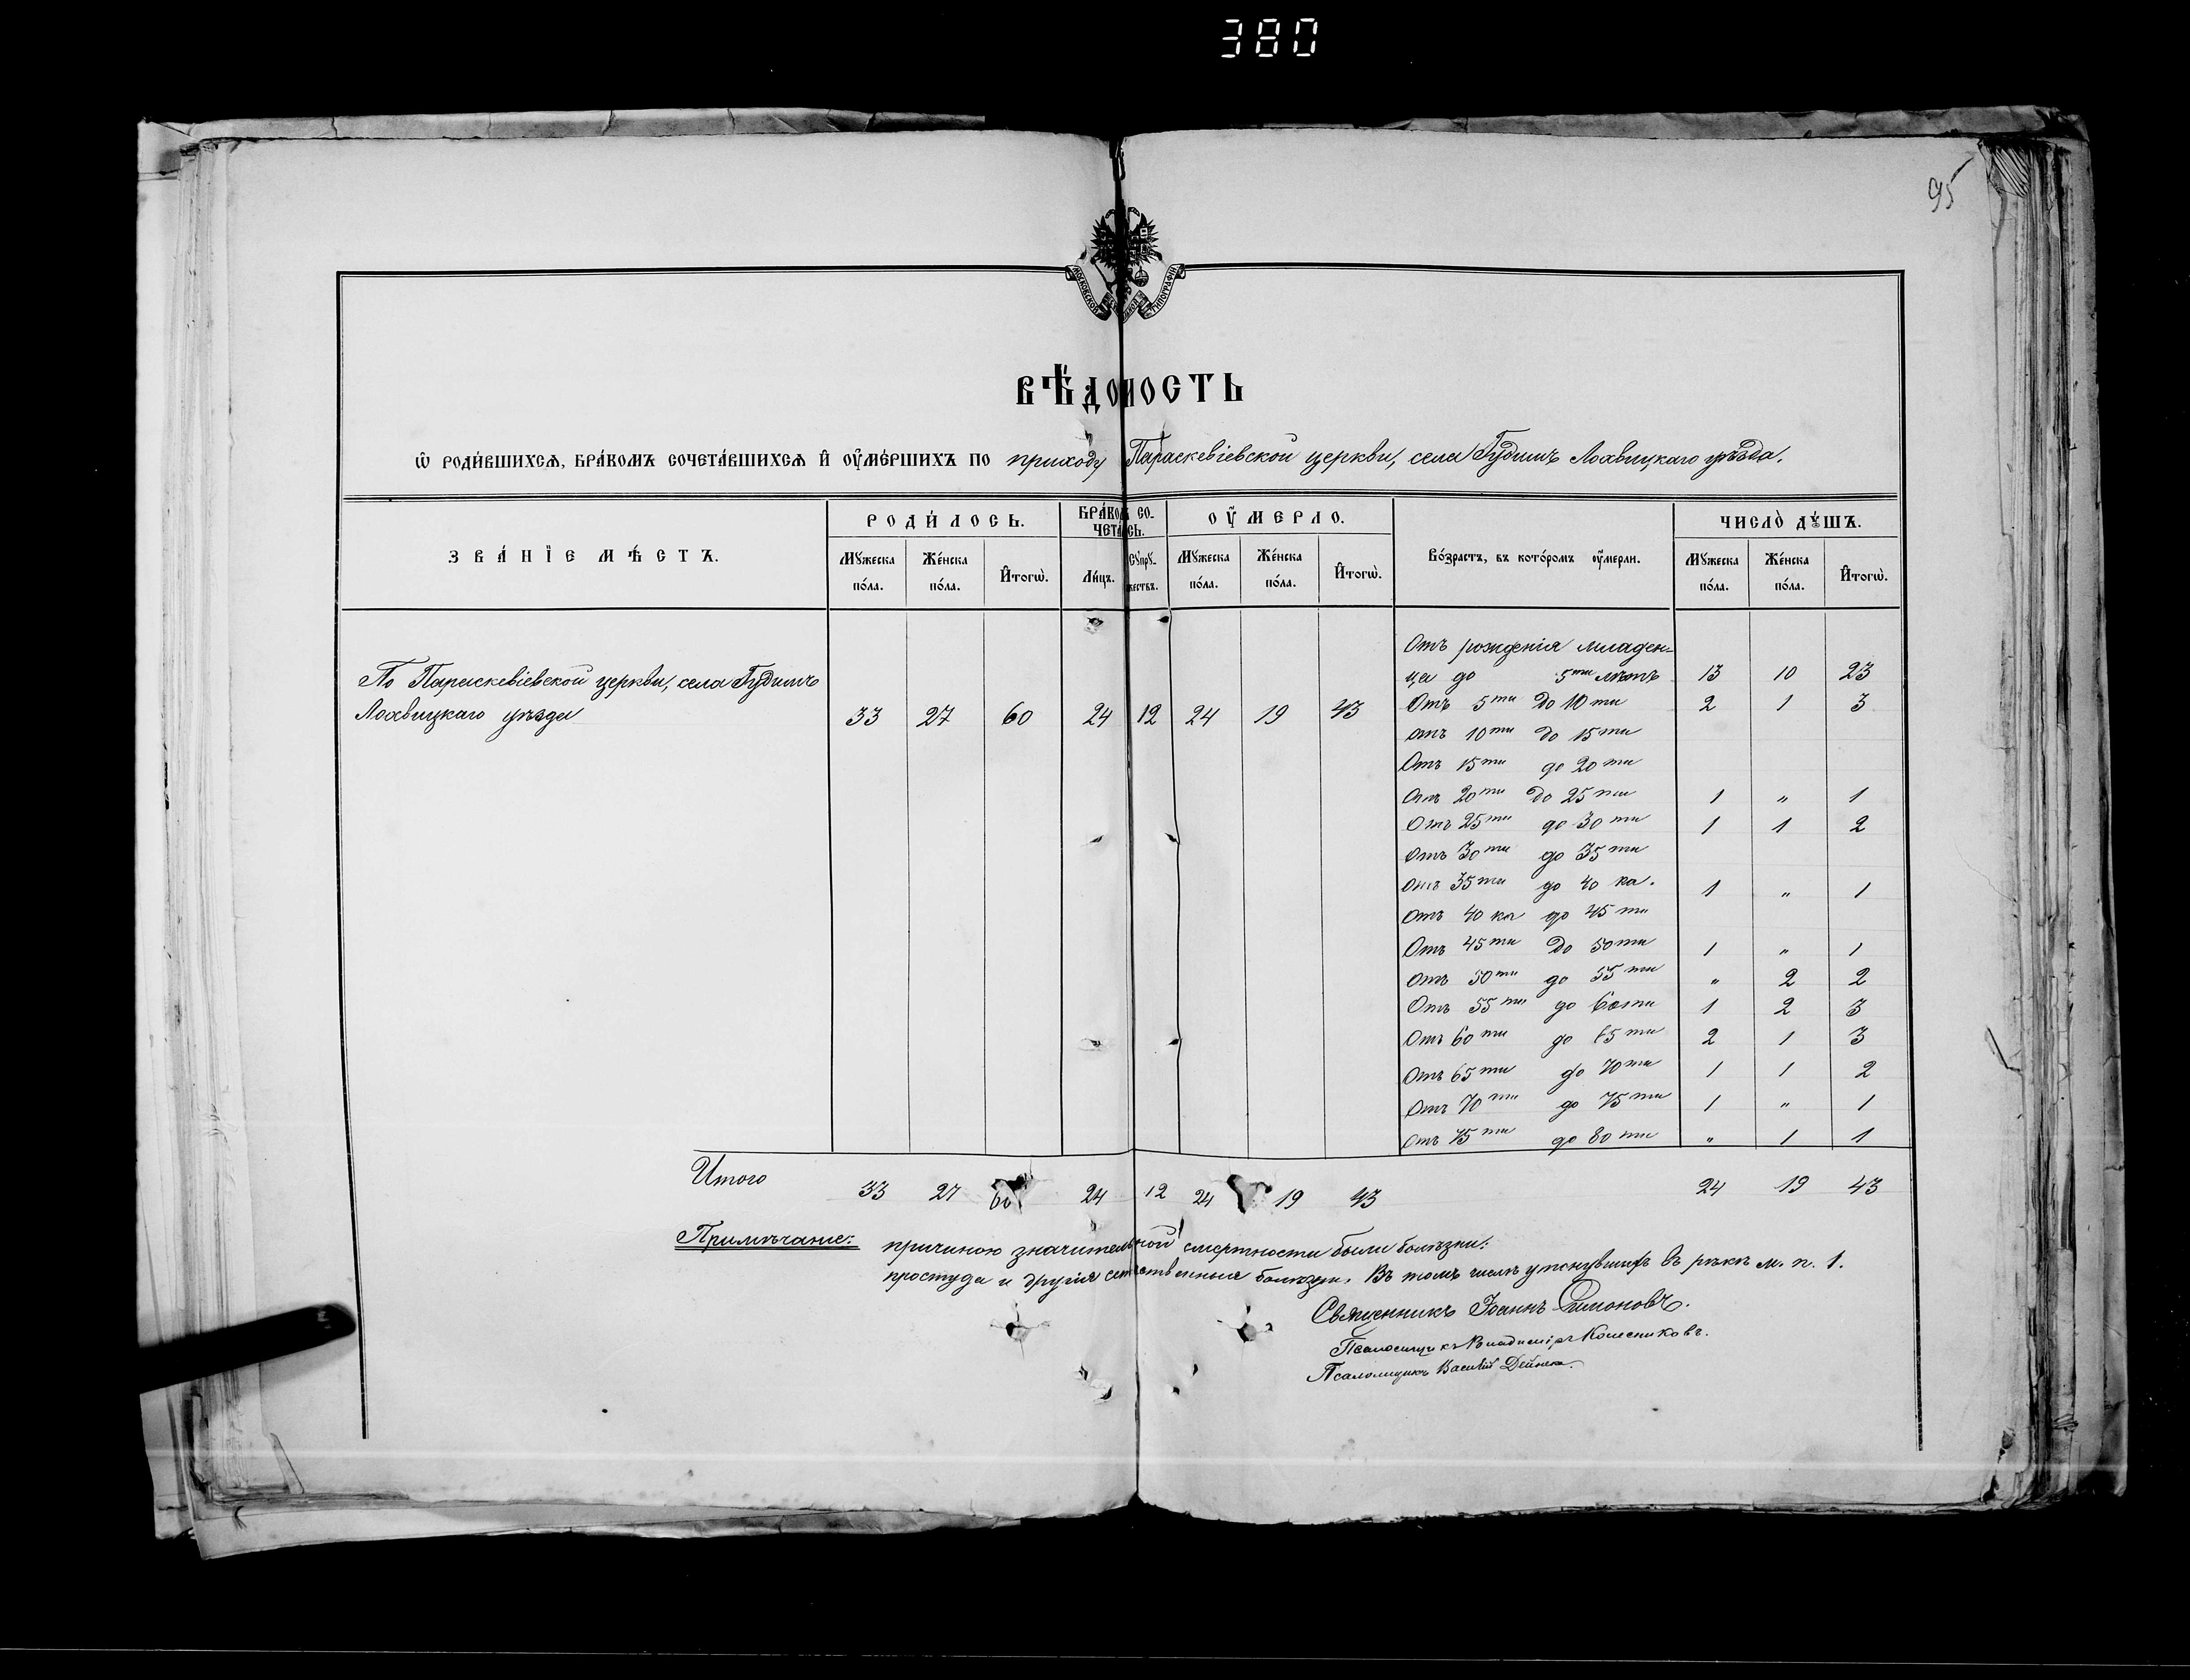 380
95
МОСКОВСКОЙ СѴНОД. ТИПОГРАФІИ
ВѢДОМОСТЬ
Ѡ РОДИ́ВШИХСѦ, БРА́КОМЪ СОЧЕТА́ВШИХСѦ И҆ ОУ҆МЕ́РШИХЪ ПО приходу Параскевіевской церкви, села Гудимъ Лохвицкаго уѣзда.
ЗВА́НІЕ МѢ́СТЪ. РОДИ́ЛОСЬ. БРА́КОМ СОЧЕТА СЬ. ОУ҆МЕРЛО. Во́зрастъ, въ кото́ромъ оу҆́мерли. ЧИСЛО̀ ДꙊ́ШЪ.
Мꙋ́жеска по́ла. Же́нска по́ла. И҆тогѡ̀. Ли́цъ. Сꙋпрꙋ́жествъ. Мꙋ́жеска по́ла. Же́нска по́ла. И҆тогѡ̀. Мꙋ́жеска по́ла. Же́нска по́ла. И҆тогѡ̀.
По Параскевіевской церкви, села Гудимъ
Лохвицкаго уѣзда 33 27 60 24 12 24 19 43
Отъ рожденія младен-
ца до 5ти лѣтъ 13 10 23
Отъ 5ти до 10ти 2 1 3
отъ 10ти до 15ти
Отъ 15ти до 20ти
Отъ 20ти до 25ти 1 „ 1
Отъ 25ти до 30ти 1 1 2
Отъ 30ти до 35ти
Отъ 35ти до 40 ка. 1 „ 1
Отъ 40 ка до 45ти
Отъ 45ти до 50ти 1 „ 1
Отъ 50ти до 55ти „ 2 2
Отъ 55ти до 60ти 1 2 3
Отъ 60ти до 65ти 2 1 3
Отъ 65ти до 70ти 1 1 2
Отъ 70ти до 75ти 1 „ 1
Отъ 75ти до 80ти „ 1 1
Итого 33 27 60 24 12 24 19 43 24 19 43
Примѣчаніе: причиною значительной смертности были болѣзни:
простуда и другія естественныя болѣзни. Въ томъ числѣ утонувшихъ въ рѣкѣ м. п. 1.
Священникъ Іоаннъ Симоновъ.
Псаломщикъ Владиміръ Колесниковъ.
Псаломщикъ Василій Дейнека.